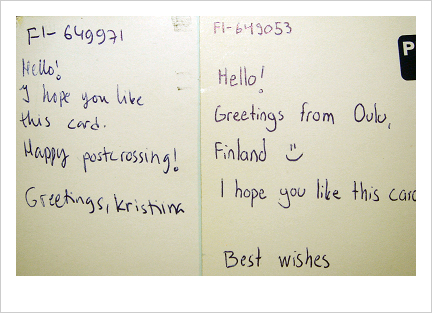 FI-649971
Hello!
I hope you like
this card.
Happy postcrossing!
Greetings, Kristiina
FI-649053
Hello!
Greetings from Oulu,
Finland :)
I hope you like this card
Best wishes
P